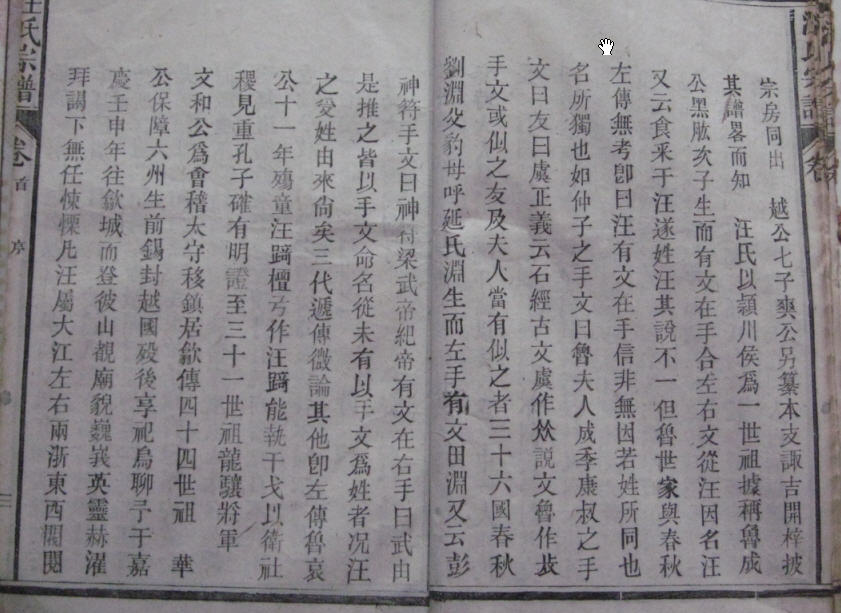 宗房同出　越公七子爽公另纂本支諏吉開梓披
其譜畧而知　汪氏以頴川侯爲一世祖據稱魯成
公黑肱次子生而有文在手合左右文從汪因名汪
又云食采于汪遂姓汪其說不一但魯世家與春秋
左傳無考卽曰汪有文在手信非無因若姓所同也
名所獨也如仲子之手文曰魯夫人成季康叔之手
文曰友曰虞正義云石經古文虞作㷋說文魯作㫺
手文或似之友及夫人當有似之者三十六國春秋
劉淵父豹母呼延氏淵生而左手有文田淵又云彭
神符手文曰神符梁武帝紀帝有文在右手曰武由
是推之皆以手文命名從未有以手文爲姓者况汪
之受姓由來尙矣三代遞傳微論其他卽左傳魯哀
公十一年殤童汪踦檀弓作汪踦能執干戈以衛社
稷見重孔子確有明證至三十一世祖龍驤將軍
文和公爲會稽太守移鎮居歙傳四十四世祖　華
公保障六州生前錫封越國殁後享祀烏聊予于嘉
慶壬申年往歙城而登彼山覩廟貌巍峩英靈赫濯
拜謁下無任悚慄凡汪屬大江左右兩浙東西閥閱
汪氏宗譜　卷首　序